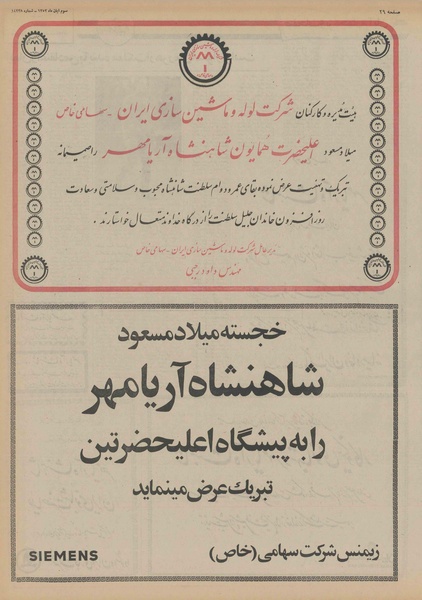 صفحه ۲۶
سوم آبان ماه
هیئت مدیره و کارکنان شرکت لوله و ماشین سازی ایران - سهامی خاص
میلاد مسعود اعلیحضرت همایون شاهنشاه آریامهر را صمیمانه
تبریک و تهنیت عرض نموده و بقای عمر و دوام سلطنت شاهنشاه محبوب و سلامتی و سعادت
روز افزون خاندان جلیل سلطنت را از درگاه خداوند متعال خواستارند .
مدیر عامل شرکت لوله و ماشین سازی ایران - سهامی خاص
مهندس داود رجبی
خجسته میلاد مسعود
شاهنشاه آریامهر
را به پیشگاه اعلیحضرتین
تبریک عرض مینماید
زیمنس شرکت سهامی (خاص)
SIEMENS